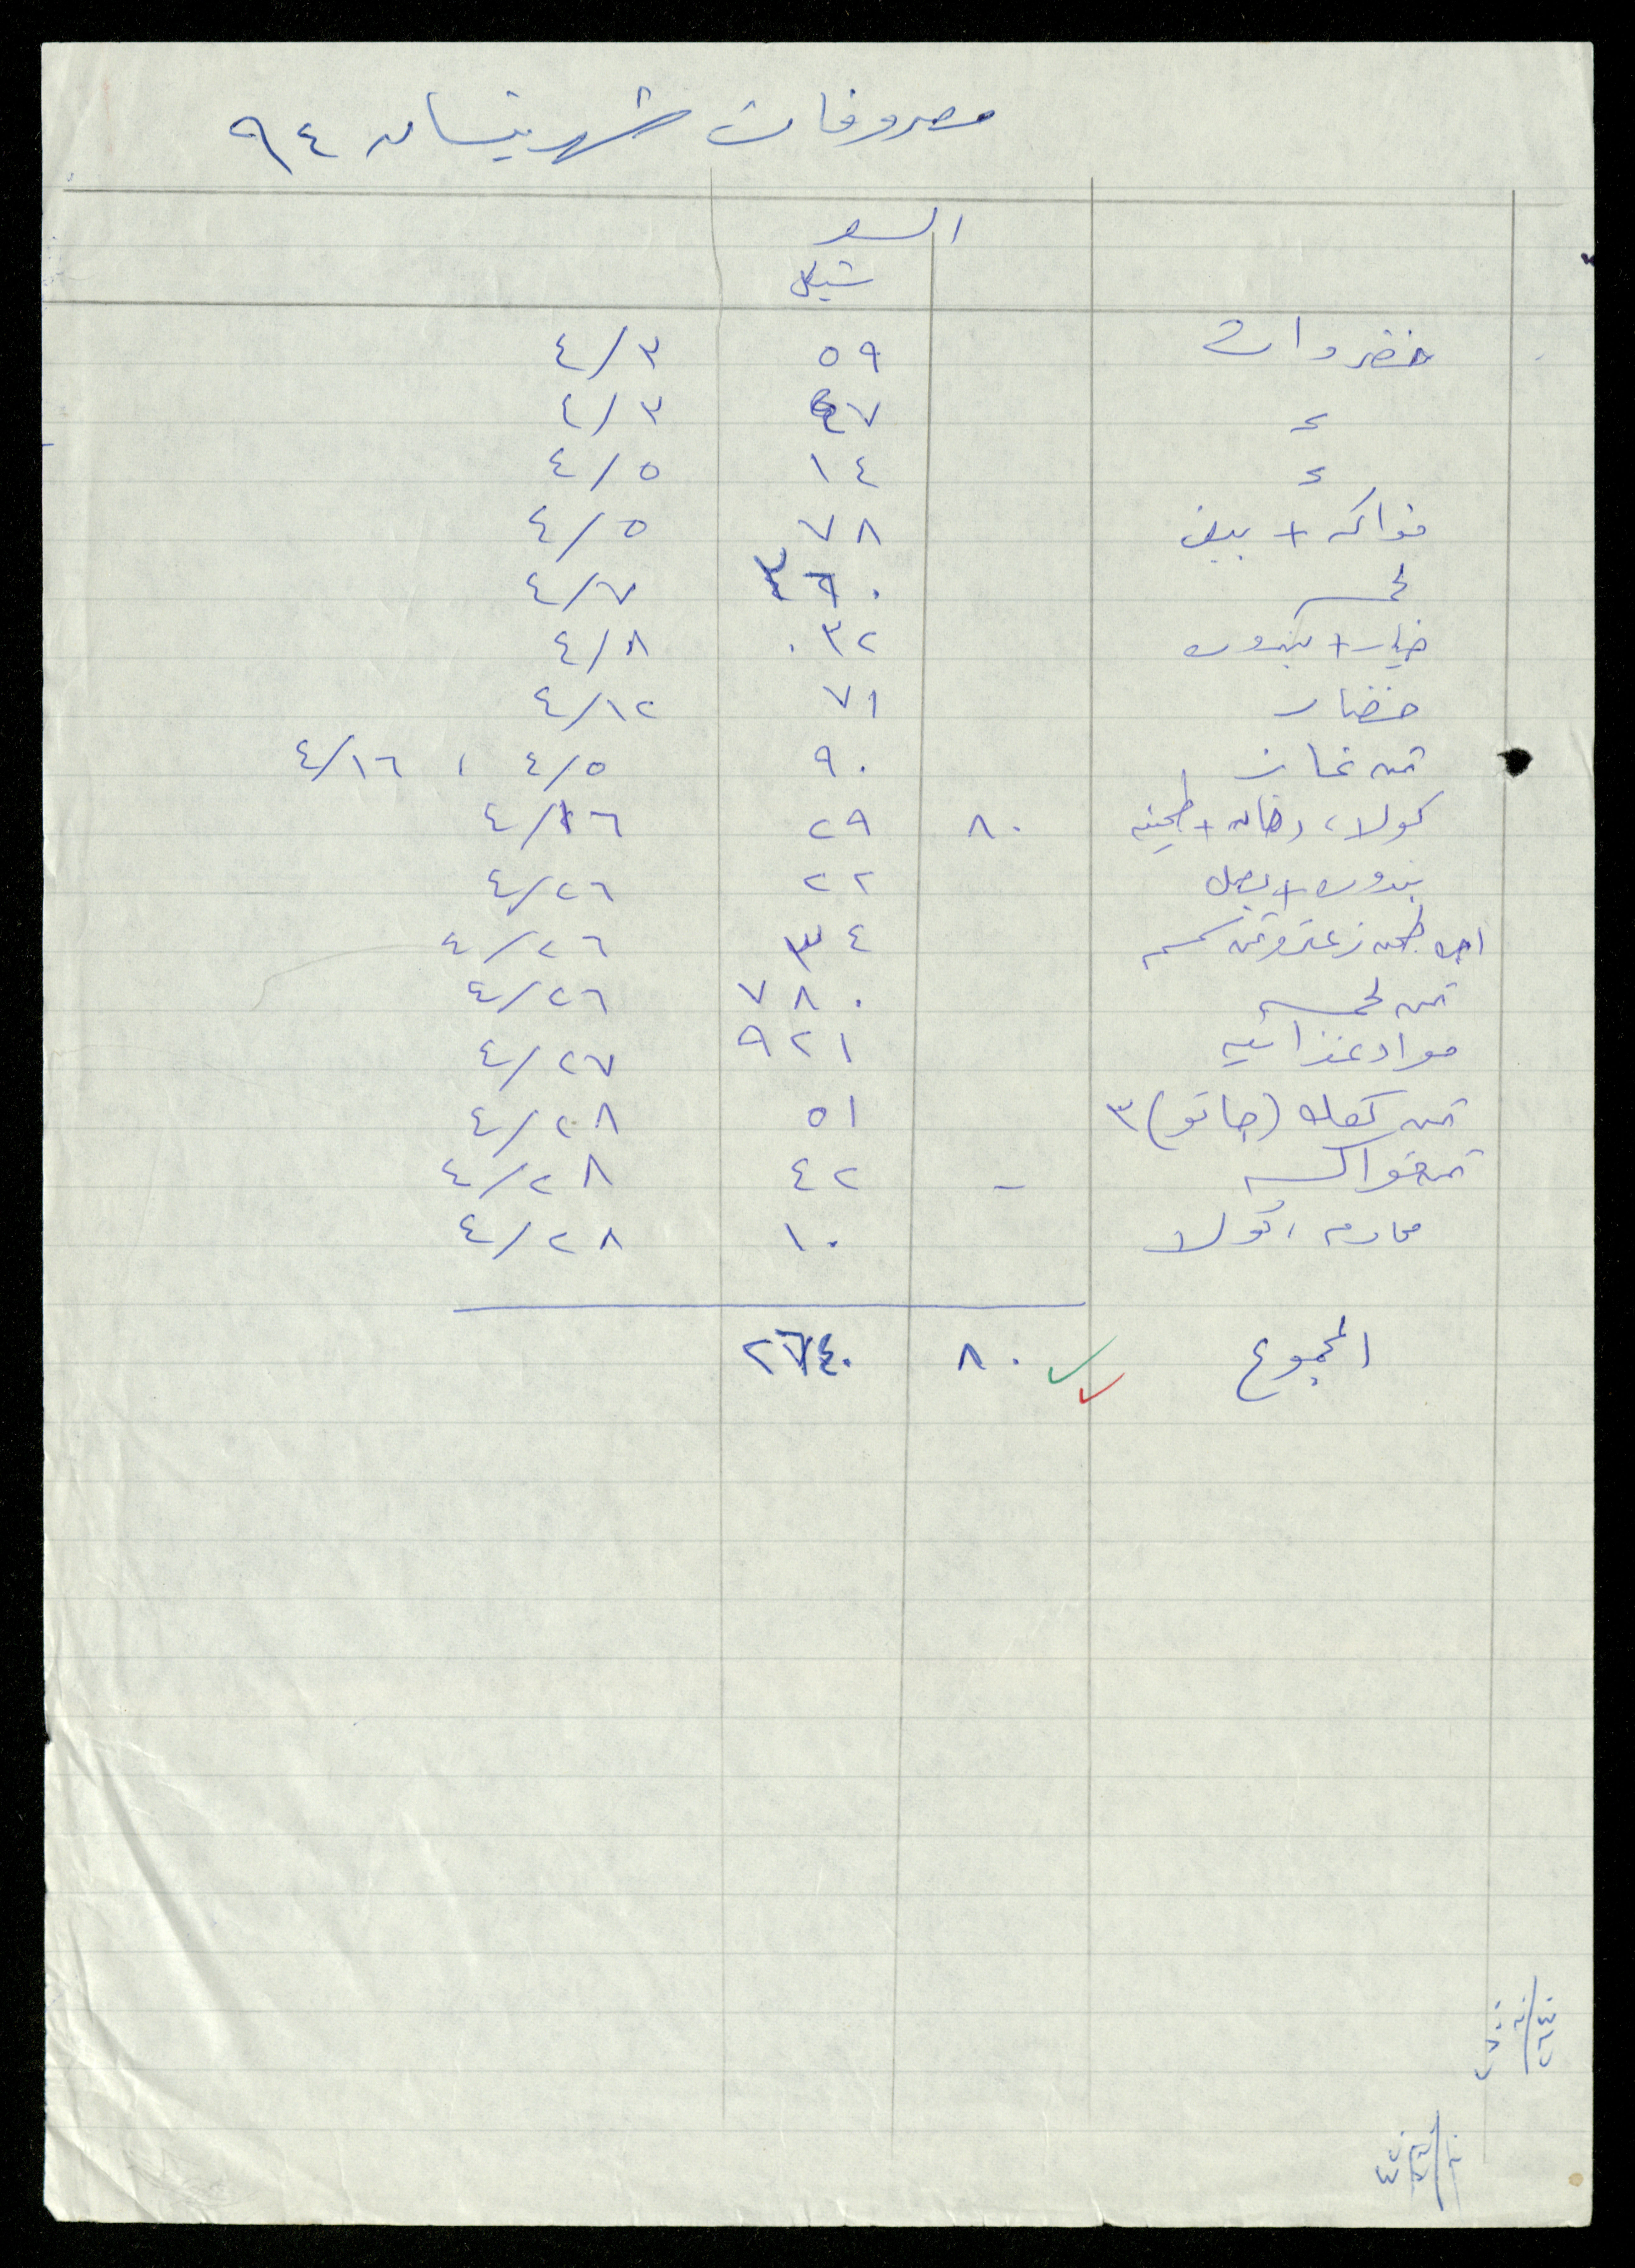 مصروفات شهر نيسان ٩٤
السعر
شيكل
خضروات ٥٩ ٤/٣
= ٤٧ ٤/٣
= ١٤ ٤/٥
فواكه + بيض ٧٨ ٤/٥
لحمه ٣٦٠ ٤/٧
خيار + بندوره ٣٢ ٤/٨
خضار ٧١ ٤/١٢
ثمن غاز ٩٠ ٤/٥ ، ٤/١٦
كولا، دخان + طحينه ٨٠ ٢٩ ٤/١٦
بندوره + بصل ٢٢ ٤/٢٦
طحن زعتر وثمن سمسم ٣٤ ٤/٢٦
ثمن لحمه ٧٨٠ ٤/٢٦
مواد غذائيه ٩٢١ ٤/٢٧
ثمن كعك (جاتو) ٣ ٥١ ٤/٢٨
ثمن فواكه - ٤٢ ٤/٢٨
محارم، كولا ١٠ ٤/٢٨
المجموع ٨٠ ٢٦٤٠
٢٦٤٠